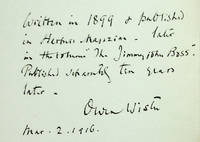 Written in 1899 & published
in Harpers Magazine - later
in the volume "The Jimmyjohn Boss".
Published separately ten years
later -
Owen Wister
Mar. 2. 1916.